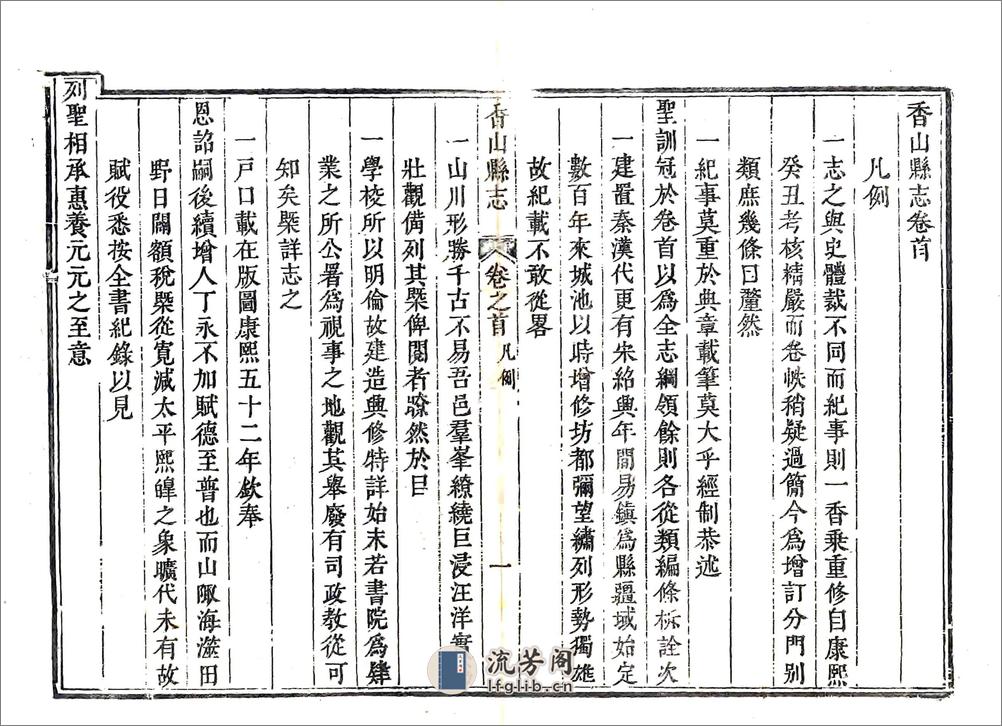 香山縣志卷首
凡例
一志之與史體裁不同而紀事則一香乘重修自康熙
癸丑考核精嚴而卷帙稍疑過簡今爲增訂分門別
類庶幾條目釐然
一紀事莫重於典章載筆莫大乎經制恭述
聖訓冠於卷首以爲全志綱領餘則各從類編條柝詮次
一建置秦漢代更有宋紹興年間易鎮爲縣疆域始定
數百年來城池以時增修坊都彌望繡列形勢獨雄
故紀載不敢從畧
香山縣志
卷之首
凡例
一
一山川形勝千古不易吾邑羣峯繚繞巨浸汪洋實
壯觀備列其槩俾閱者瞭然於目
一學校所以明倫故建造興修特詳始末若書院爲肄
業之所公署爲視事之地觀其舉廢有司政教從可
知矣槩詳志之
一戸口載在版圖康熙五十二年欽奉
恩詔嗣後續增人丁永不加賦德至普也而山陬海澨田
野日闢額稅槩從寬減太平熙皥之象曠代未有故
賦役悉按全書紀錄以見
列聖相承惠養元元之至意
流芳阁
lfglib.cn